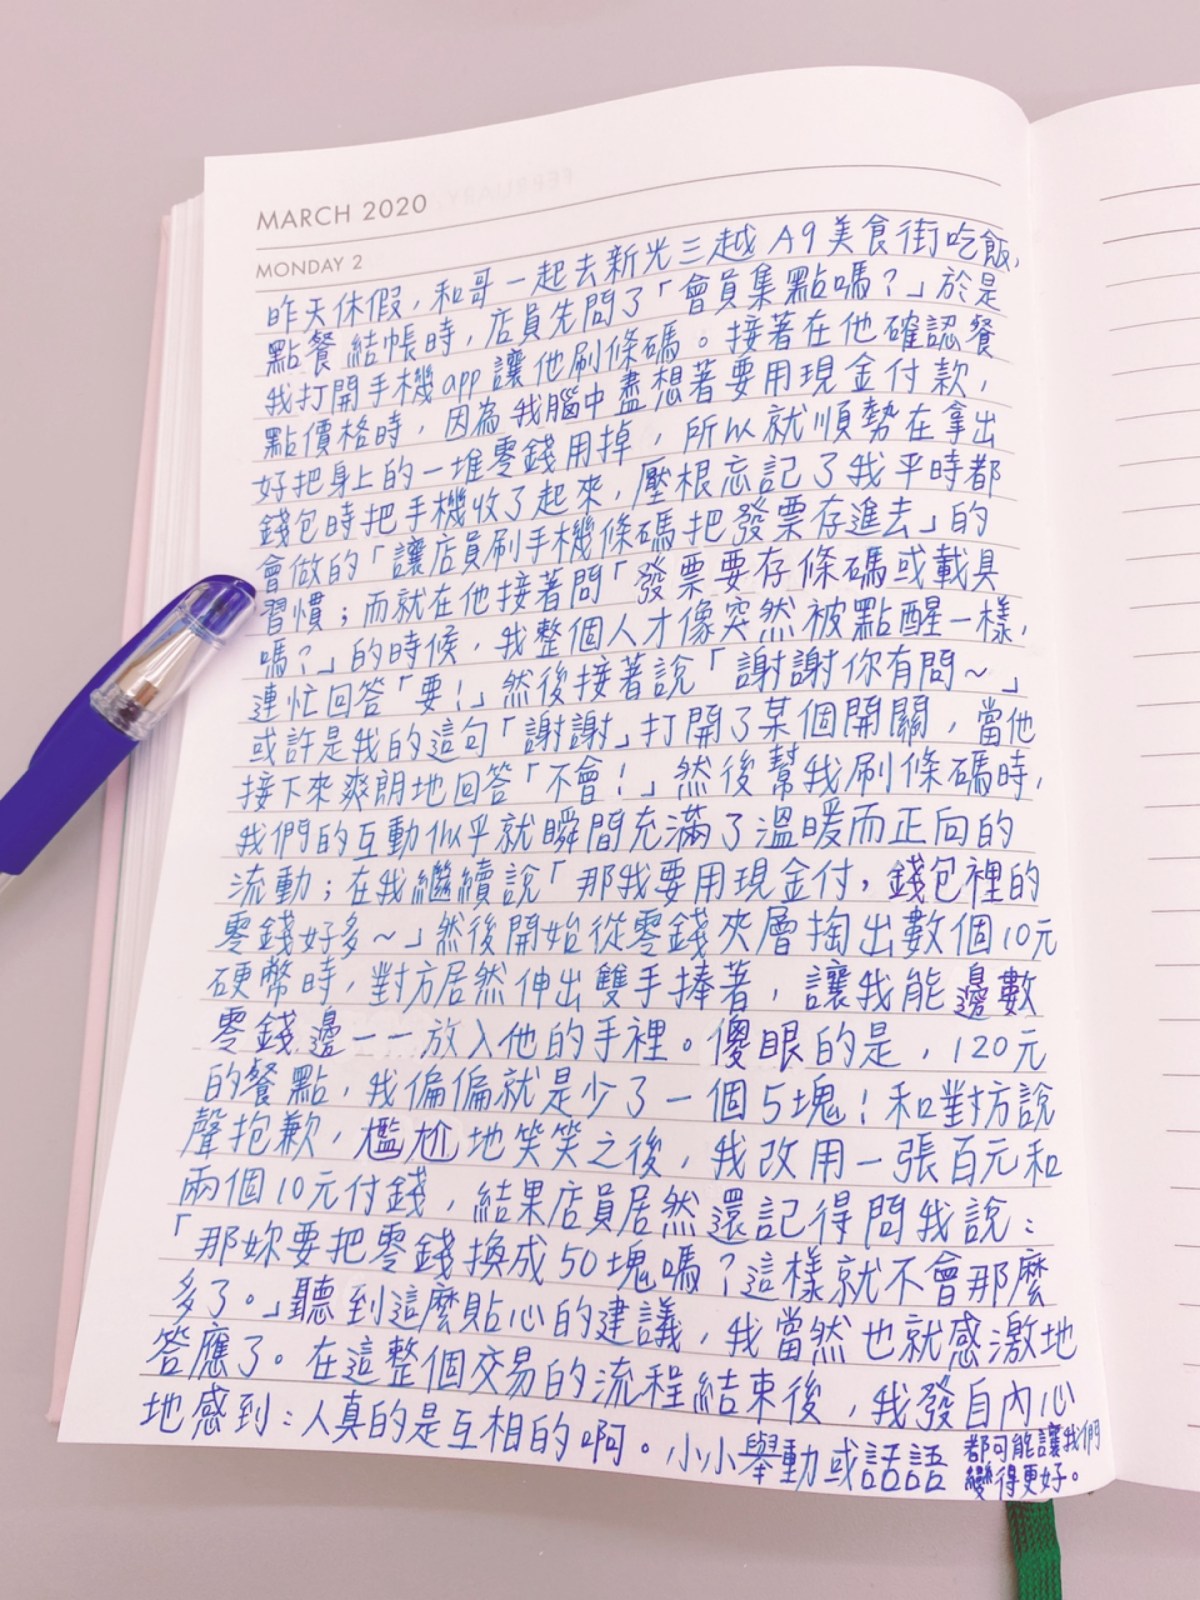 MARCH 2020
MONDAY 2
昨天休假,和哥一起去新光三越A9美食街吃飯,
點餐結帳時,店員先問了「會員集點嗎?」於是
我打開手機app讓他刷條碼。接著在他確認餐
點價格時,因為我腦中盡想著要用現金付款,
好把身上的一堆零錢用掉,所以就順勢在拿出
錢包時把手機收了起來,壓根忘記了我平時都
會做的「讓店員刷手機條碼把發票存進去」的
習慣;而就在他接著問「發票要存條碼或載具
嗎?」的時候,我整個人才像突然被點醒一樣,
連忙回答「要!」然後接著說「謝謝你有問~」
或許是我的這句「謝謝」打開了某個開關,當他
接下來爽朗地回答「不會!」然後幫我刷條碼時,
我們的互動似乎就瞬間充滿了溫暖而正向的
流動;在我繼續說「那我要用現金付,錢包裡的
零錢好多~」然後開始從零錢夾層掏出數個10元
硬幣時,對方居然伸出雙手捧著,讓我能邊數
零錢邊一一放入他的手裡。傻眼的是,120元
的餐點,我偏偏就是少了一個5塊!和對方說
聲抱歉,尷尬地笑笑之後,我改用一張百元和
兩個10元付錢,結果店員居然還記得問我說:
「那妳要把零錢換成50塊嗎?這樣就不會那麼
多了。」聽到這麼貼心的建議,我當然也就感激地
答應了。在這整個交易的流程結束後,我發自內心
地感到:人真的是互相的啊。小小舉動或話語 都可能讓我們
變得更好。